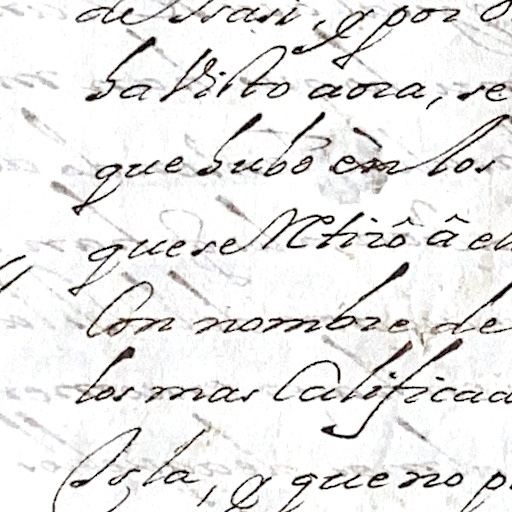 de Isasi, q por
ha Visto aora, se
que hubô èn los
que se Retirô â el
Con nombre de
los mas Calificad
Isla, q que no p